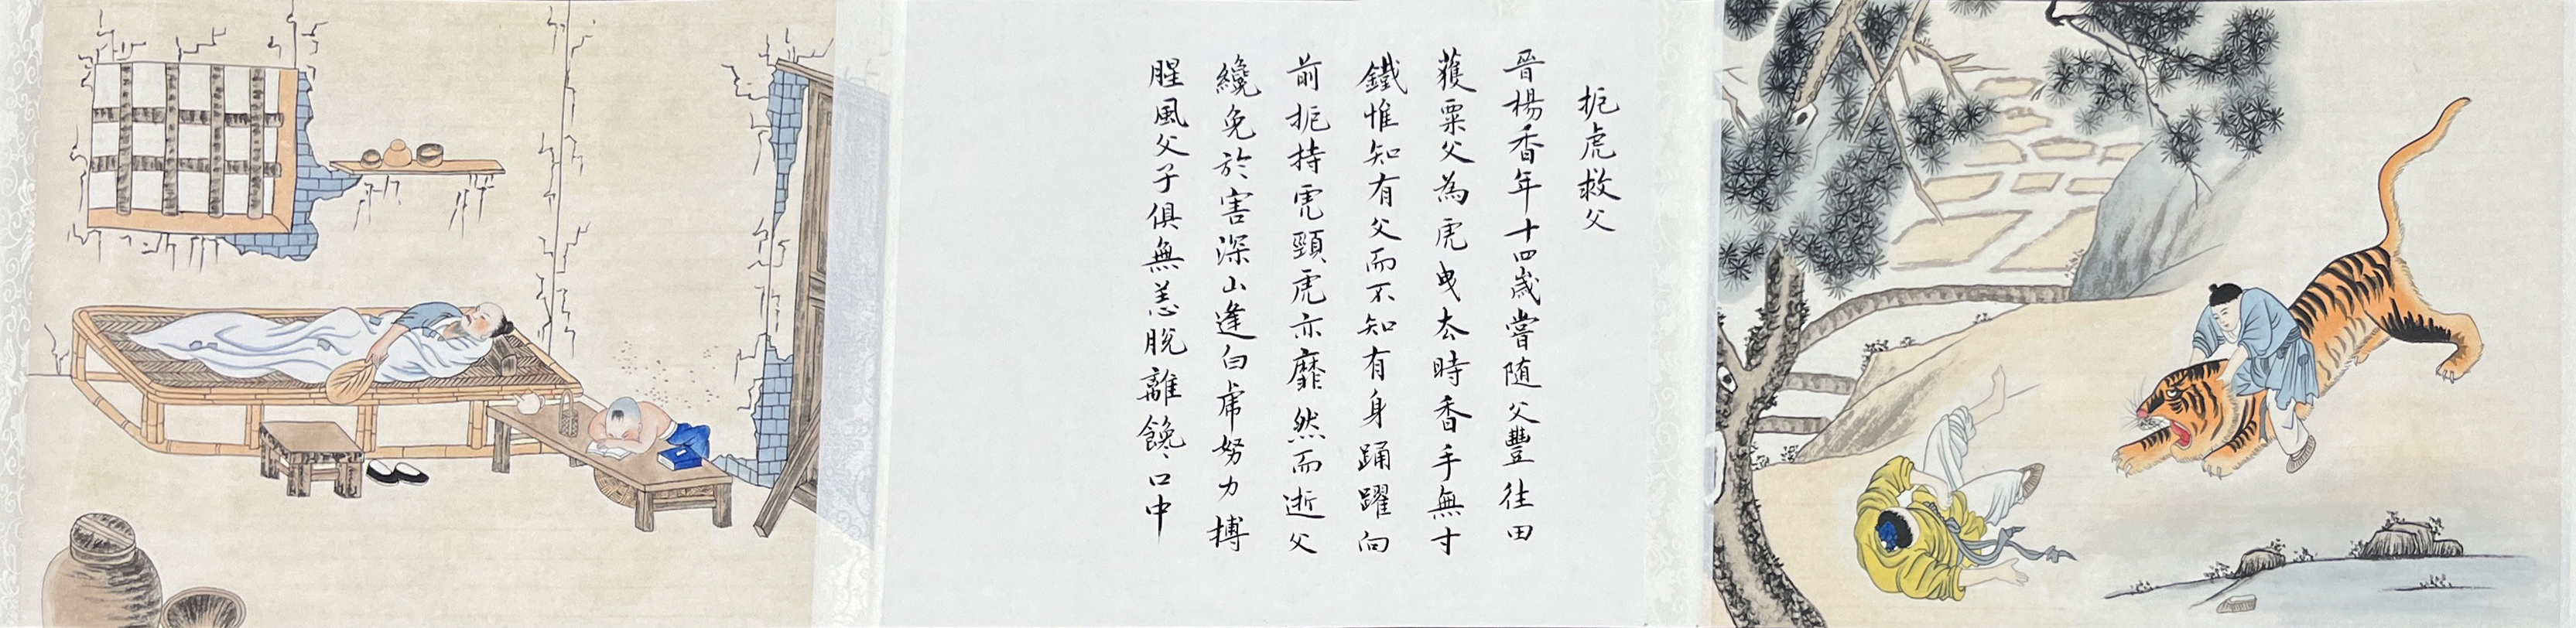 扼虎救父
晉楊香年十四歲嘗随父豐往田
獲粟父為虎曳去時香手無寸
鐵惟知有父而不知有身踊躍向
前扼持虎頸虎亦靡然而逝父
纔免於害深山逢白虎努力搏
腥風父子俱無恙脫離饞口中